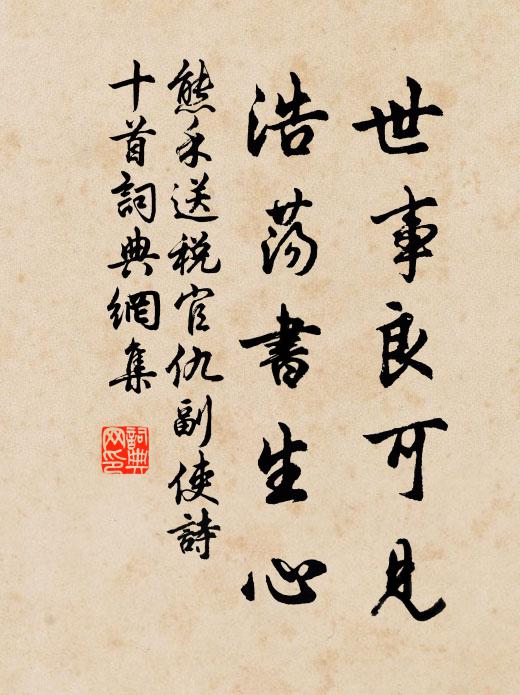 世事良可見
浩蕩書生心
熊禾送税官仇副使詩
十首詞典網集
詞典
网印